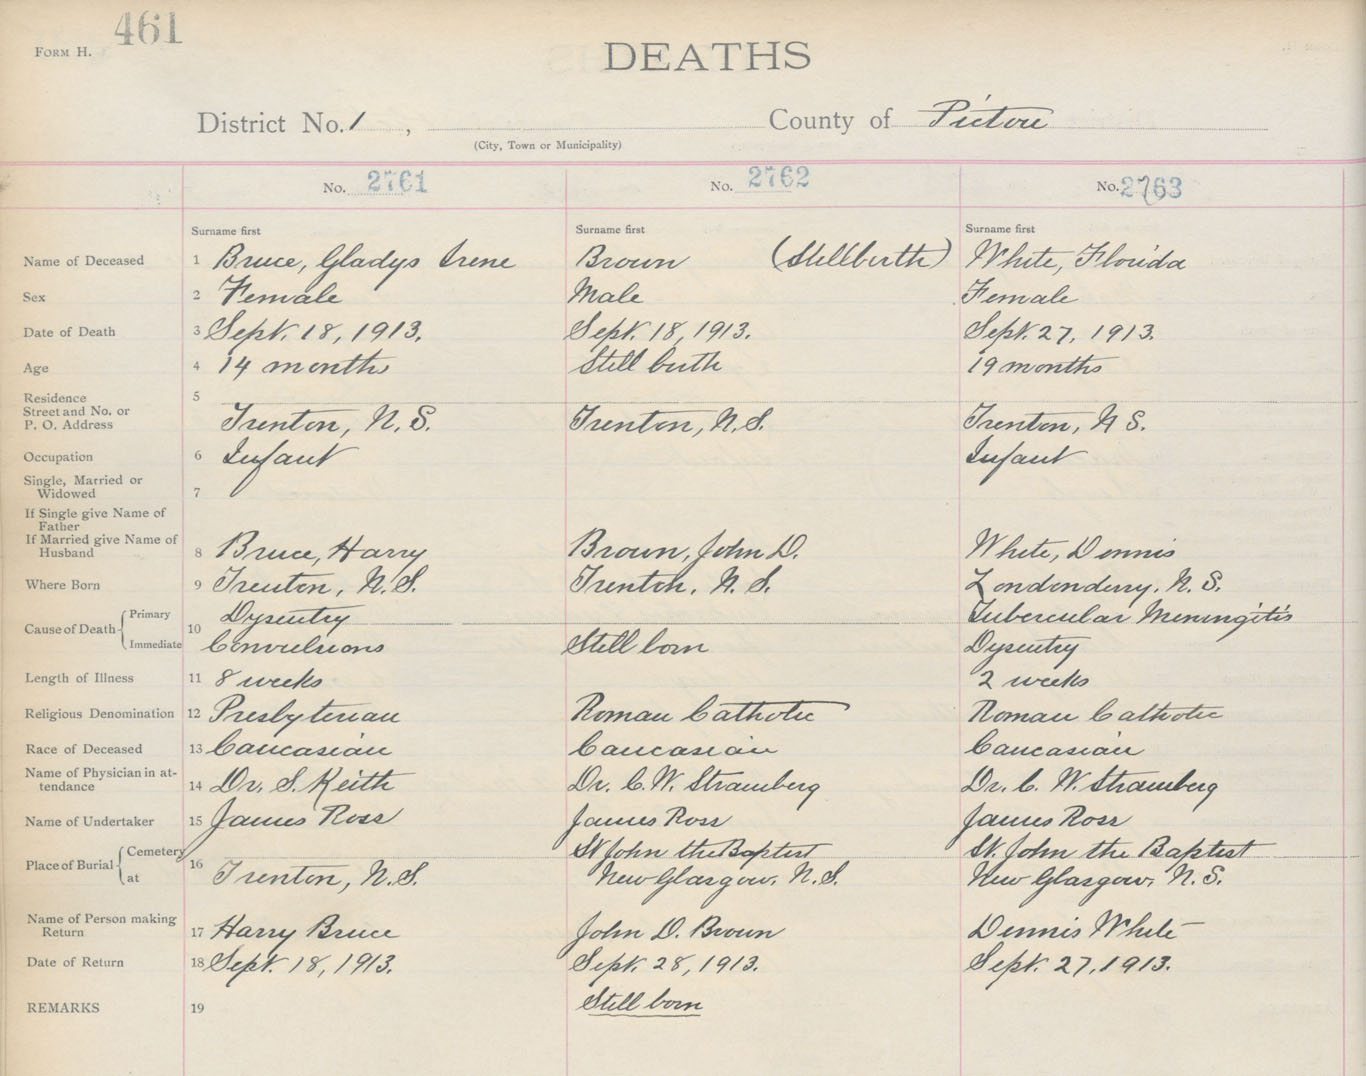 461
FORM H.
DEATHS
District No. 1 , County of Pictou
(City, Town or Municipality)
No. 2761 No. 2762 No. 2763
Surname first Surname first Surname first
Name of Deceased 1 Bruce, Gladys Irene Brown (Stillbirth) White, Florida
Sex 2 Female Male Female
Date of Death 3 Sept. 18, 1913. Sept. 18, 1913. Sept. 27, 1913.
Age 4 14 months Still birth 19 months
Residence 5
Street and No. or
P. O. Address Trenton, N.S. Trenton, N.S. Trenton, N S.
Occupation 6 Infant Infant
Single, Married or
Widowed 7
If Single give Name of
Father
If Married give Name of
Husband 8 Bruce, Harry Brown, John D. White, Dennis
Where Born 9 Trenton, N.S. Trenton, N.S. Londonderry, N.S.
Cause of Death Primary 10 Dysentry Tubercular Meningitis
Immediate Convulsions Still born Dysentry
Length of Illness 11 8 weeks 2 weeks
Religious Denomination 12 Presbyterian Roman Catholic Roman Catholic
Race of Deceased 13 Caucasian Caucasian Caucasian
Name of Physician in at-
tendance 14 Dr. S. Keith Dr. C. W. Stramberg Dr. C. W. Stramberg
Name of Undertaker 15 James Ross James Ross James Ross
Place of Burial Cemetery 16 St John the Baptist St. John the Baptist
at Trenton, N.S. New Glasgow, N.S. New Glasgow, N.S.
Name of Person making
Return 17 Harry Bruce John D. Brown Dennis White
Date of Return 18 Sept. 18, 1913. Sept. 28, 1913. Sept. 27, 1913.
REMARKS 19 Still born